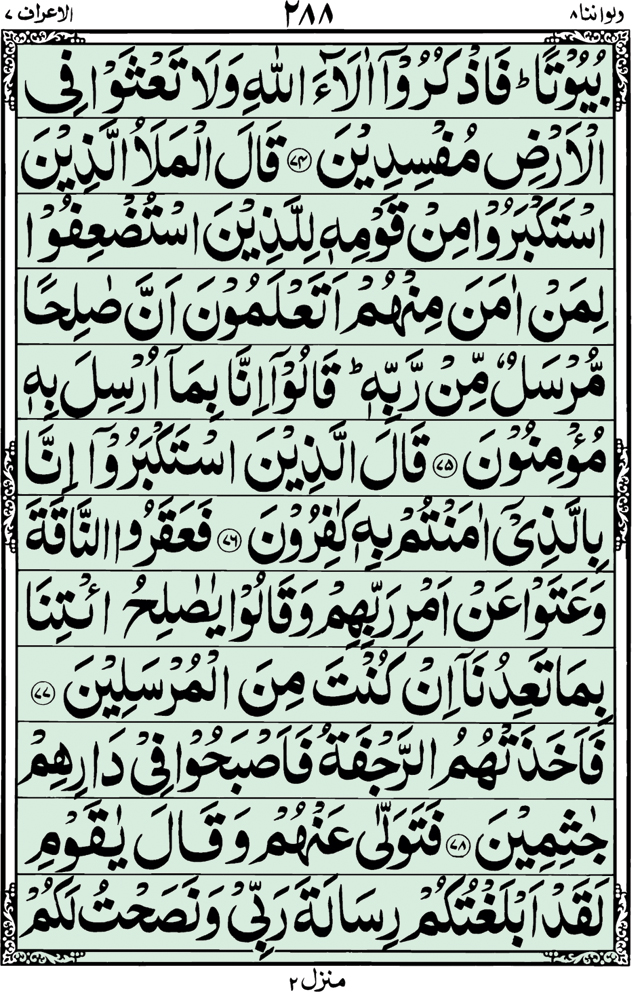 ولواننا ۸ ۲۸۸ الاعراف ۷
بُيُوۡتًا‌ ۚ فَاذۡكُرُوۡۤا اٰلَۤاءَ اللّٰهِ وَلَا تَعۡثَوۡا فِى
الۡاَرۡضِ مُفۡسِدِيۡنَ ۝۷۴ قَالَ الۡمَلَاُ الَّذِيۡنَ
اسۡتَكۡبَرُوۡا مِنۡ قَوۡمِهٖ لِلَّذِيۡنَ اسۡتُضۡعِفُوۡا
لِمَنۡ اٰمَنَ مِنۡهُمۡ اَتَعۡلَمُوۡنَ اَنَّ صٰلِحًا
مُّرۡسَلٌ مِّنۡ رَّبِّهٖ‌ ؕ قَالُوۡۤا اِنَّا بِمَاۤ اُرۡسِلَ بِهٖ
مُؤۡمِنُوۡنَ ۝۷۵ قَالَ الَّذِيۡنَ اسۡتَكۡبَرُوۡۤا اِنَّا
بِالَّذِىۡۤ اٰمَنۡتُمۡ بِهٖ كٰفِرُوۡنَ ۝۷۶ فَعَقَرُوا النَّاقَةَ
وَعَتَوۡا عَنۡ اَمۡرِ رَبِّهِمۡ وَقَالُوۡا يٰصٰلِحُ ائۡتِنَا
بِمَا تَعِدُنَاۤ اِنۡ كُنۡتَ مِنَ الۡمُرۡسَلِيۡنَ ۝۷۷
فَاَخَذَتۡهُمُ الرَّجۡفَةُ فَاَصۡبَحُوۡا فِىۡ دَارِهِمۡ
جٰثِمِيۡنَ ۝۷۸ فَتَوَلّٰى عَنۡهُمۡ وَقَالَ يٰقَوۡمِ
لَقَدۡ اَبۡلَغۡتُكُمۡ رِسَالَةَ رَبِّىۡ وَنَصَحۡتُ لَكُمۡ
منزل ۲